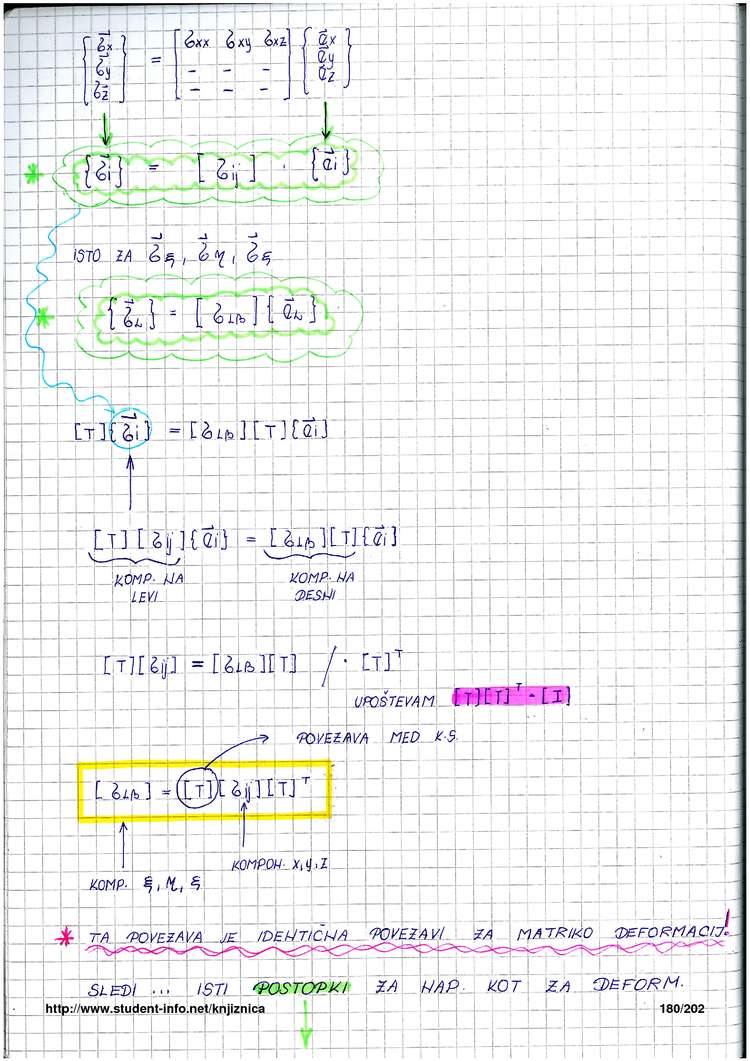 {σ⃗x σ⃗y σ⃗z} = [σxx σxy σxz - - - - - -] {e⃗x e⃗y e⃗z}
* {σ⃗i} = [σij] · {e⃗i}
ISTO ZA σ⃗ξ, σ⃗η, σ⃗ξ
* {σ⃗α} = [σαβ] {e⃗α}
[T]{σ⃗i} = [σαβ][T]{e⃗i}
[T][σij]{e⃗i} = [σαβ][T]{e⃗i}
KOMP. NA LEVI
KOMP. NA DESNI
[T][σij] = [σαβ][T] / · [T]ᵀ
UPOŠTEVAM [T][T]ᵀ = [I]
POVEZAVA MED K.S.
[σαβ] = [T][σij][T]ᵀ
KOMPON. X, Y, Z
KOMP. ξ, η, ξ
* TA POVEZAVA JE IDENTIČNA POVEZAVI ZA MATRIKO DEFORMACIJ!
SLEDI ... ISTI POSTOPKI ZA NAP. KOT ZA DEFORM.
http://www.student-info.net/knjiznica 180/202